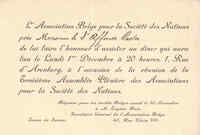 L'Association Belge pour la Société des Nations
prie Monsieur
de lui faire l'honneur d'assister au dîner qui aura
lieu le Lundi 1er Décembre à 20 heures, 1, Rue
d'Arenberg, à l'occasion de la réunion de la
Troisième Assemblée Plénière des Associations
pour la Société des Nations.
Réponse pour les invités Belges avant le 26 Novembre
à M.
Secrétaire Général de l'Association Belge
Tenue de Soirée